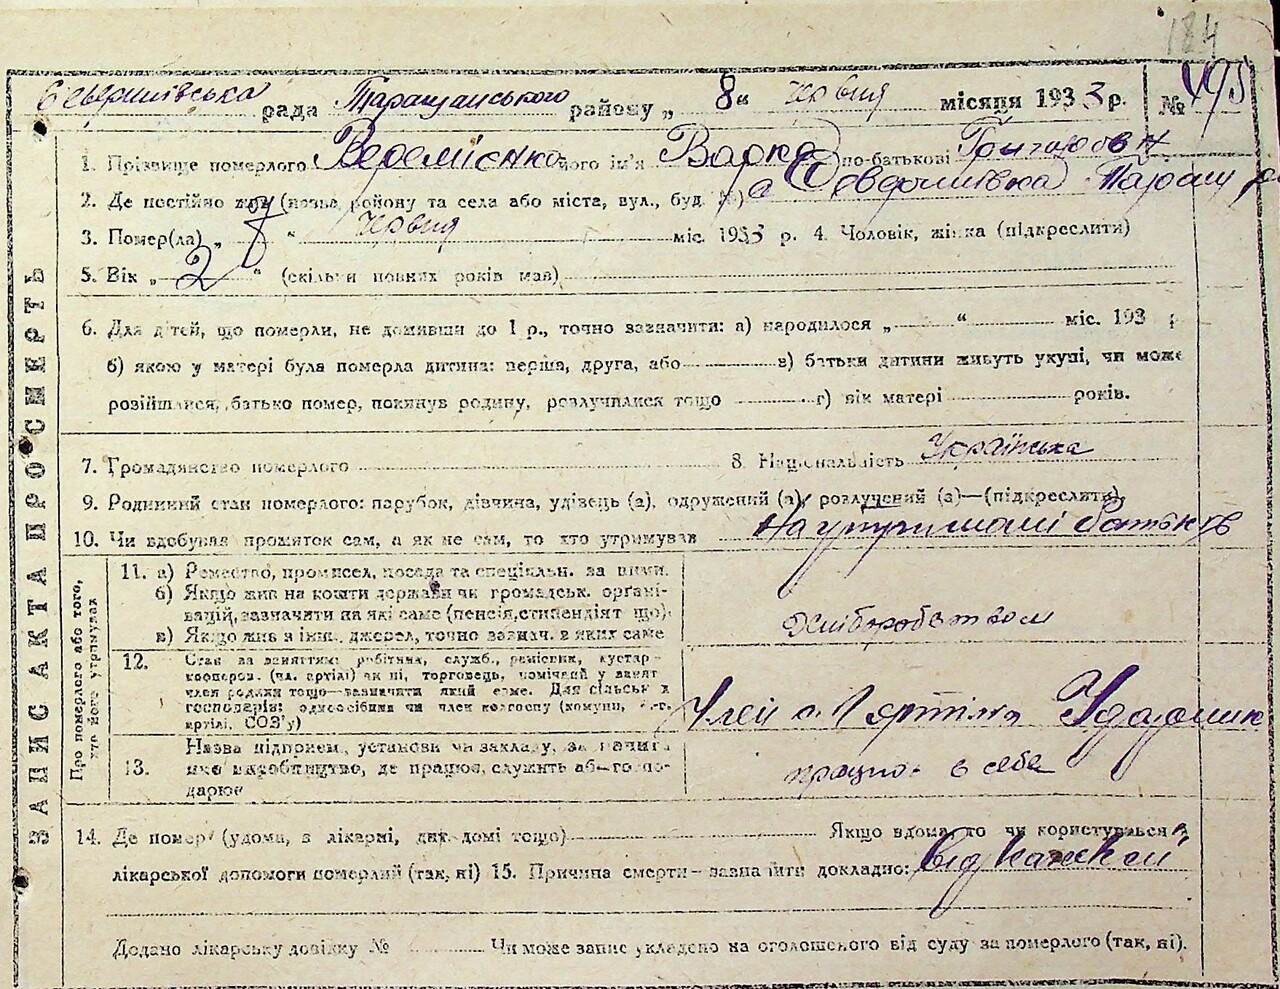 184
Северинівська рада Таращанського району „ 8 “ червня місяця 1933 р. №
1. Прізвище померлого Веремієнко його ім'я Варка по-батькові Григоровн
2. Де постійно жив (назва району та села або міста, вул., буд. №) с Северинівка Таращ р
3. Помер(ла) „ 8 “ червня міс. 1933 р. 4. Чоловік, жінка (підкреслити)
5. Вік „ 2 “ (скільки повних років мав)
6. Для дітей, що померли, не доживши до 1 р., точно зазначити: а) народилося „ “ міс. 193 р
б) якою у матері була померла дитина: перша, друга, або в) батьки дитини живуть укупі, чи може
розійшлися, батько помер, покинув родину, розлучилися тощо г) вік матері років.
7. Громадянство померлого 8. Національність Українська
9. Родинний стан померлого: парубок, дівчина, удівець (а), одружений (а), розлучений (а)—(підкреслити)
10. Чи здобував прожиток сам, а як не сам, то хто утримував На утриманні батьків
ЗАПИС АКТА ПРО СМЕРТЬ
Про померлого або того, хто його утримував
11. а) Ремество, промисел, посада та спеціяльн. за ними.
б) Якщо жив на кошти держави чи громадськ. органі-
зацій, зазначити на які саме (пенсія, стипендіят що)
в) Якщо жив з інш. джерел, точно зазнач. в яких саме
Хліборобством
12. Стан за заняттям: робітник, служб., ремісник, кустар
кооперов. (чл. артілі) як ні, торговець, помічний у занят
член родини тощо—зазначити який саме. Для сільськ
господарів: одноосібник чи член колгоспу (комуни,
артілі, СОЗ'у)
Член Ударник
13. Назва підприєм., установи чи закладу, зазначити
яке виробництво, де працює, служить або госпо-
дарює
працює в себе
14. Де помер (удома, в лікарні, дит. домі тощо) Якщо вдома, то чи користувався
лікарської допомоги померлий (так, ні) 15. Причина смерти - зазначити докладно: від
Додано лікарську довідку № Чи може запис укладено на оголошеного від суду за померлого (так, ні).